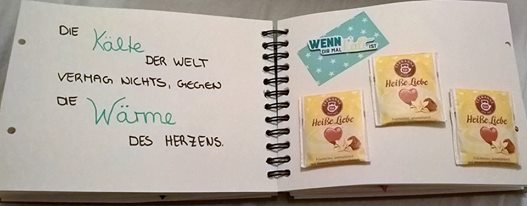 DIE Kälte
DER WELT
VERMAG NICHTS, GEGEN
DIE Wärme
DES HERZENS.
WENN
DIR MAL
IST
TEEKANNE
Heiße Liebe
TEEKANNE
Heiße Liebe
TEEKANNE
Heiße Liebe